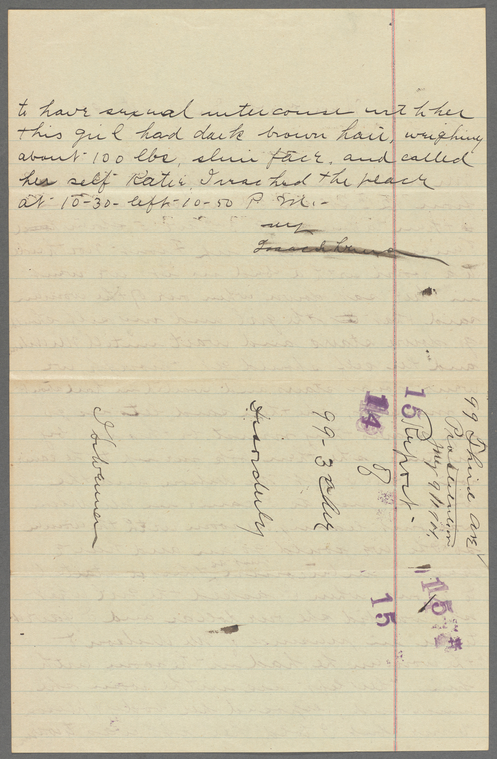 to have sexual intercourse with her
this girl had dark brown hair, weighing
about 100 lbs, slim face, and called
her self Katie, I reached the place
at 10-30- left 10-50 P.M.-
99 Third Ave
Prostitution
Report
15
14
8
99-3rd Ave
Disorderly
15
15